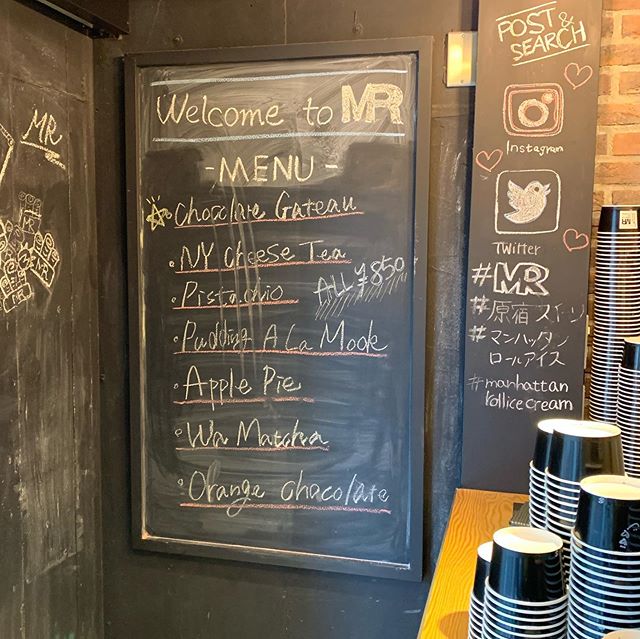 MR
Welcome to MR
- MENU -
Choclare Gateau
・NY Cheese Tea
・Pistachio
ALL ¥850
・Pudding A La Mook
・Apple Pie
・Wa Matcha
・Orange Chacolate
POST &
SEARCH
Instagram
TWitter
#MR
#原宿スイーツ
#マンハッタン
ロールアイス
#manhattan
rollicecream